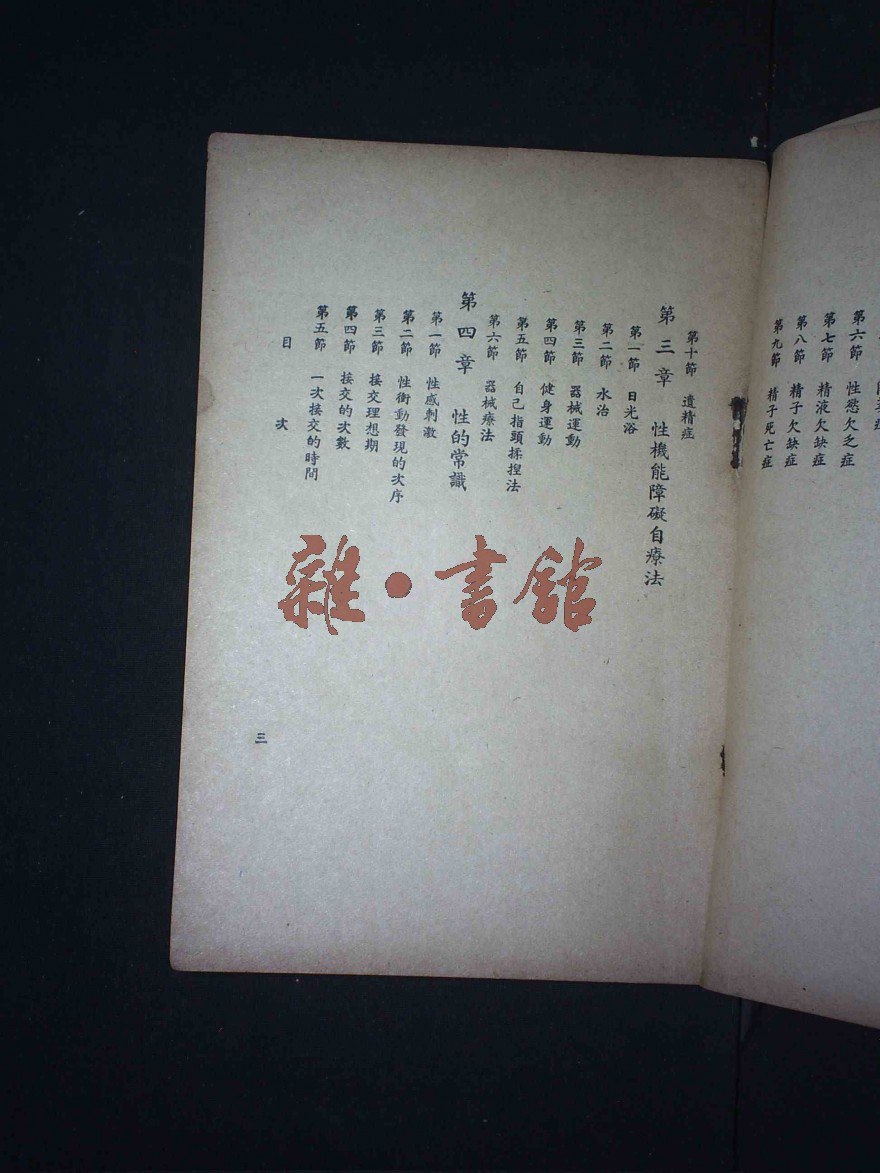 第六節 性慾欠乏症
第七節 精液欠缺症
第八節 精子欠缺症
第九節 精子死亡症
第十節 遺精症
第三章 性機能障礙自療法
第一節 日光浴
第二節 水治
第三節 器械運動
第四節 健身運動
第五節 自己指頭揉捏法
第六節 器械療法
第四章 性的常識
第一節 性感刺激
第二節 性衝動發現的次序
第三節 接交理想期
第四節 接交的次數
第五節 一次接交的時間
目次
三
雜·書館